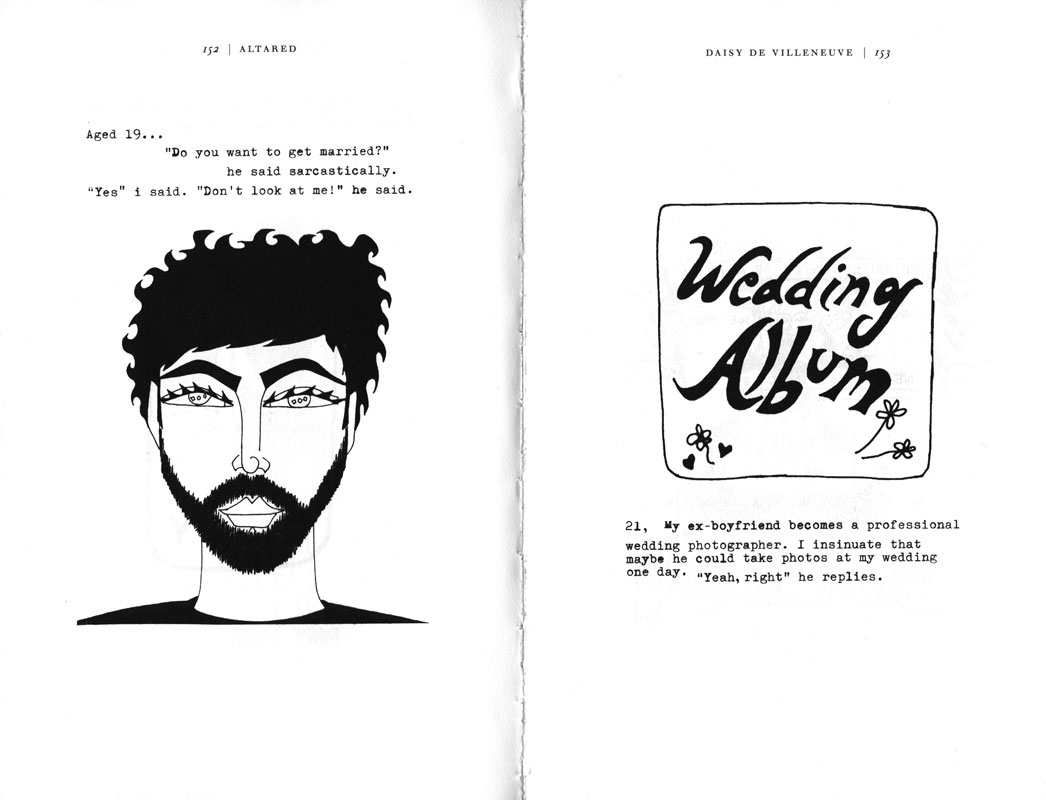 152 | ALTARED
Aged 19...
"Do you want to get married?"
he said sarcastically.
"Yes" i said. "Don't look at me!" he said.
DAISY DE VILLENEUVE | 153
Wedding
Album
21, My ex-boyfriend becomes a professional
wedding photographer. I insinuate that
maybe he could take photos at my wedding
one day. "Yeah, right" he replies.